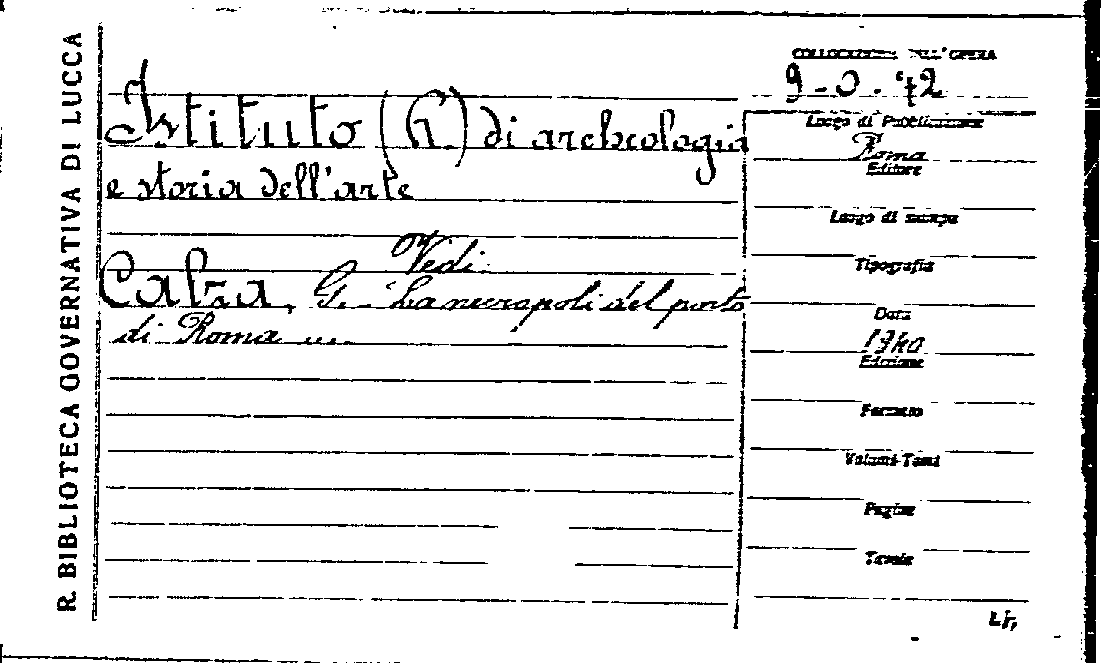 R. BIBLIOTECA GOVERNATIVA DI LUCCA
Istituto (R.) di archeologia
e storia dell'arte
Vedi:
Calza, G. - La necropoli del porto
di Roma ....
COLLOCAZIONE DELL'OPERA
9-O.42
Luogo di Pubblicazione
Roma
Editore
Luogo di stampa
Tipografia
Data
1940
Edizione
Formato
Volumi-Tomi
Pagine
Tavole